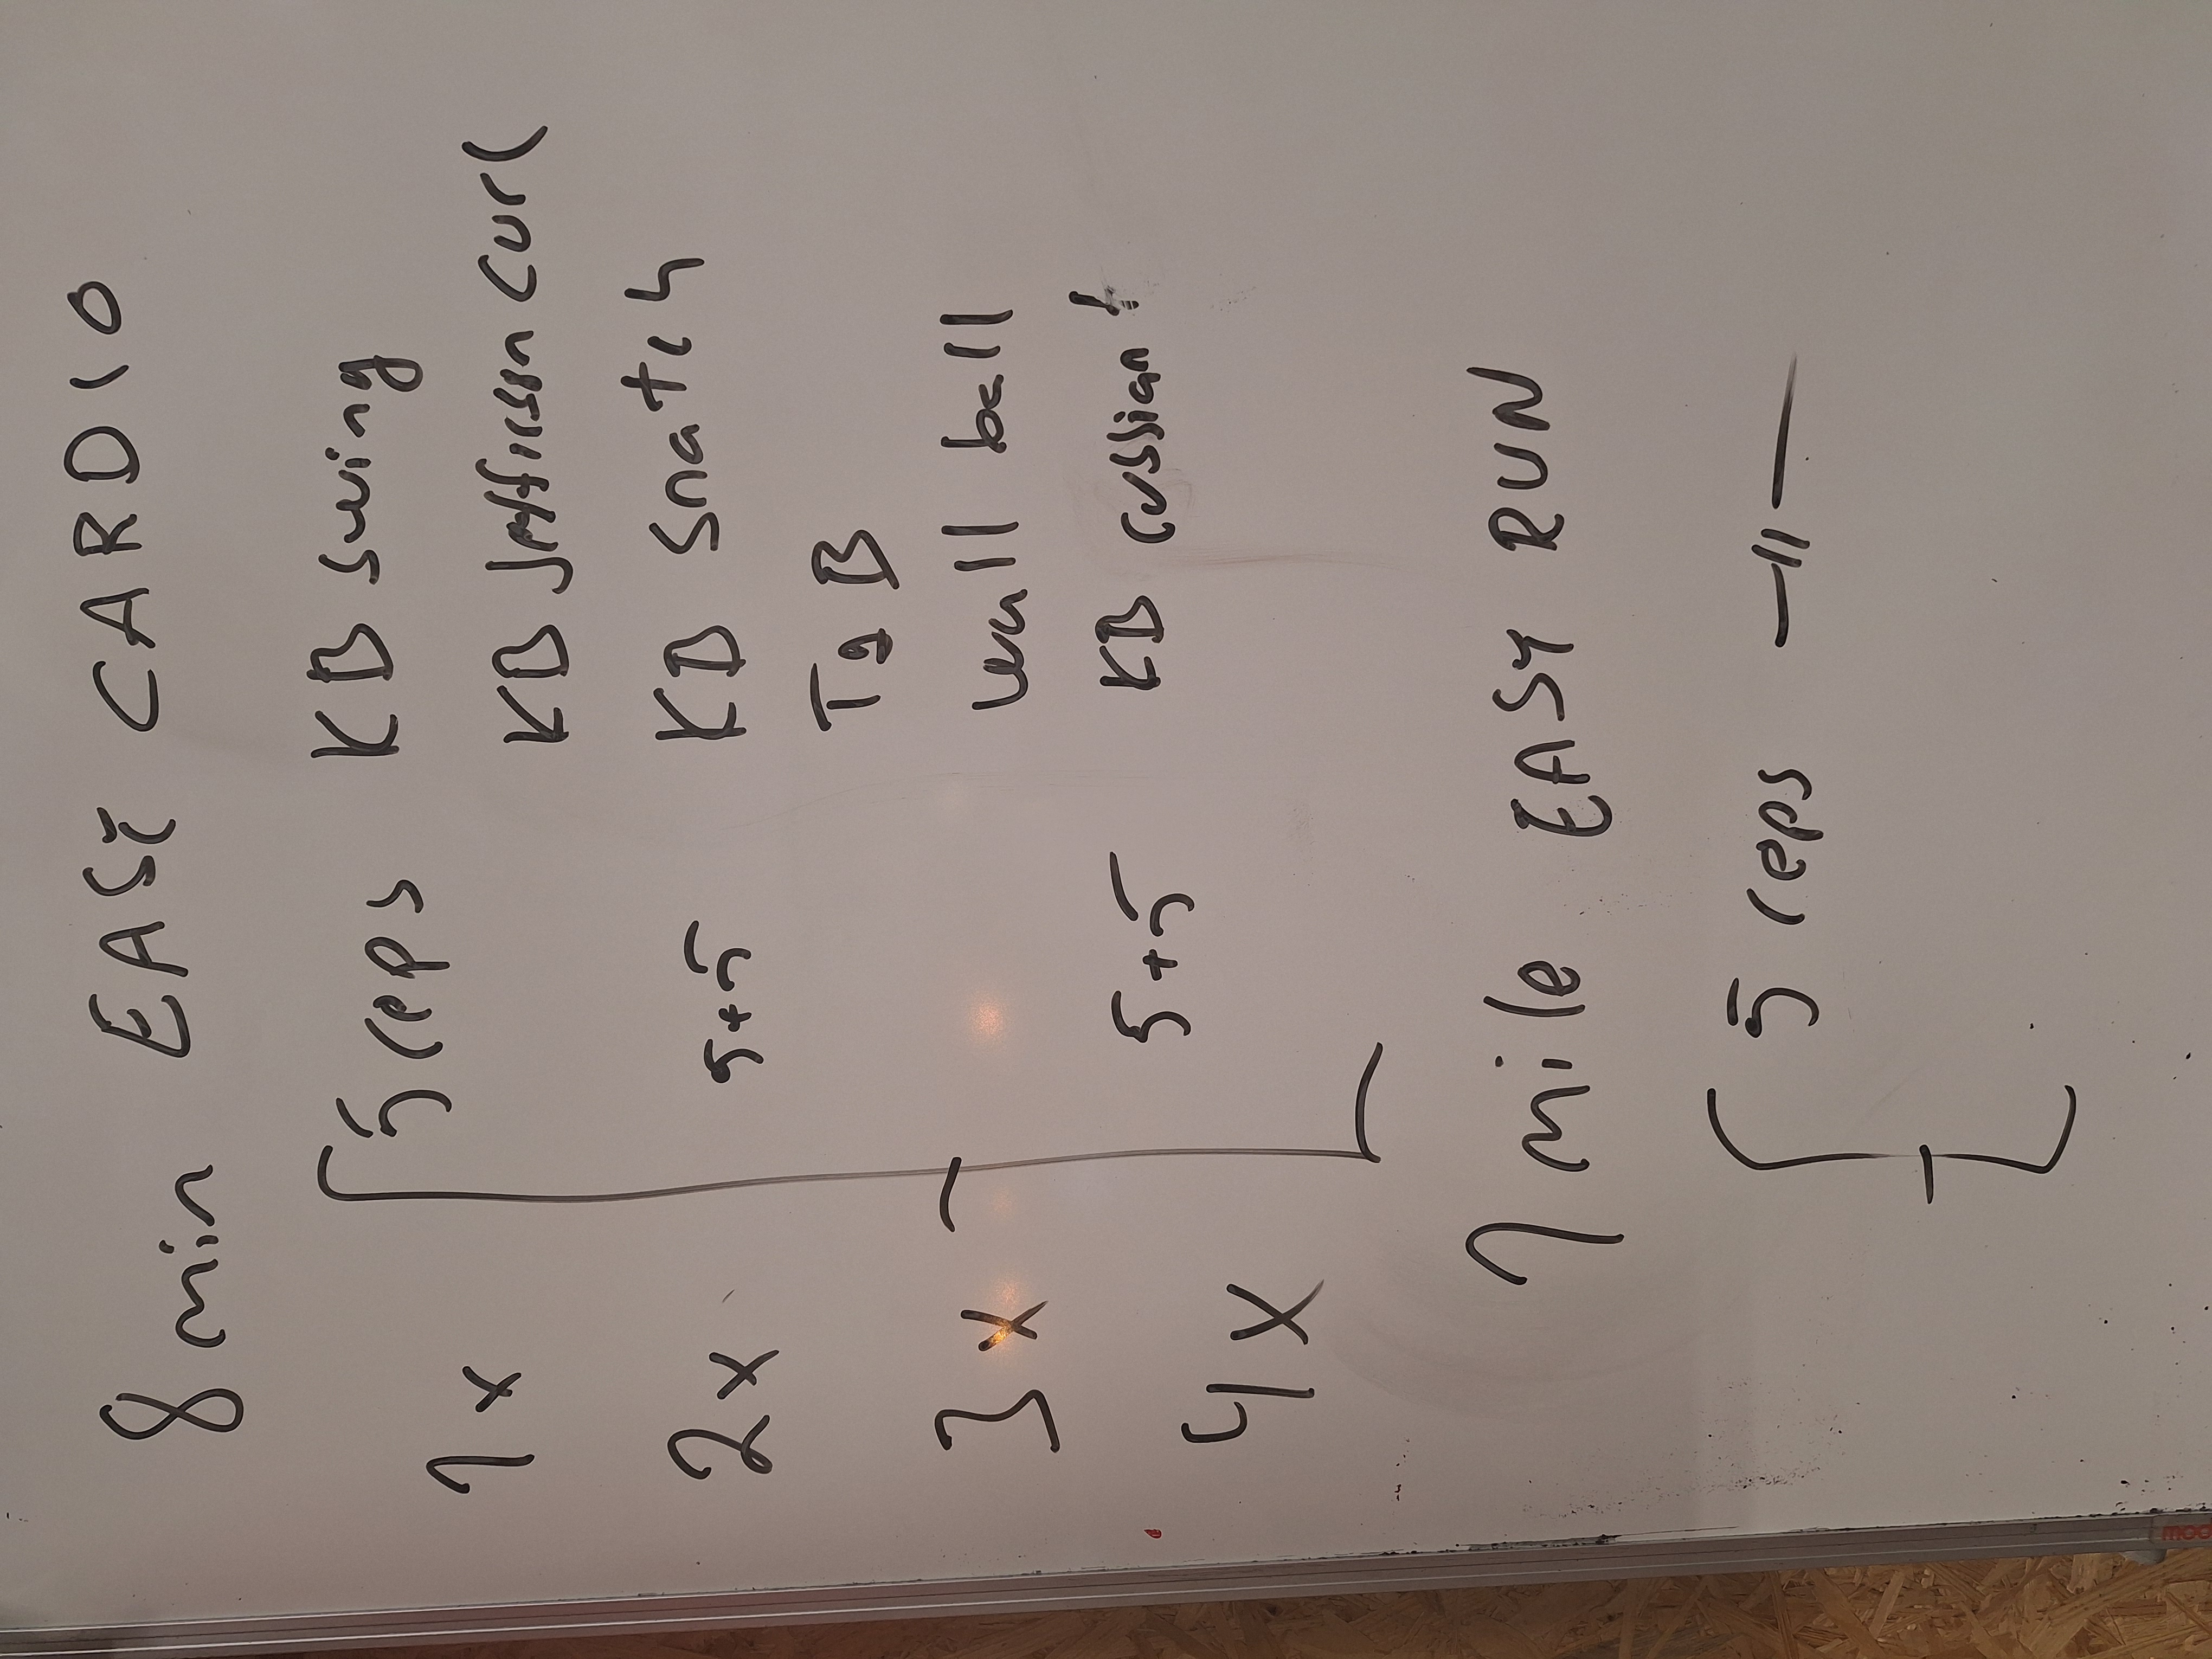 8 min EASY CARDIO
5 reps KB swing
1x KB Jefferson curl
2x 5+5 KB snatch
T2B
3x wall ball
4x 5+5 KB russian t
1 mile EASY RUN
5 reps —〃—